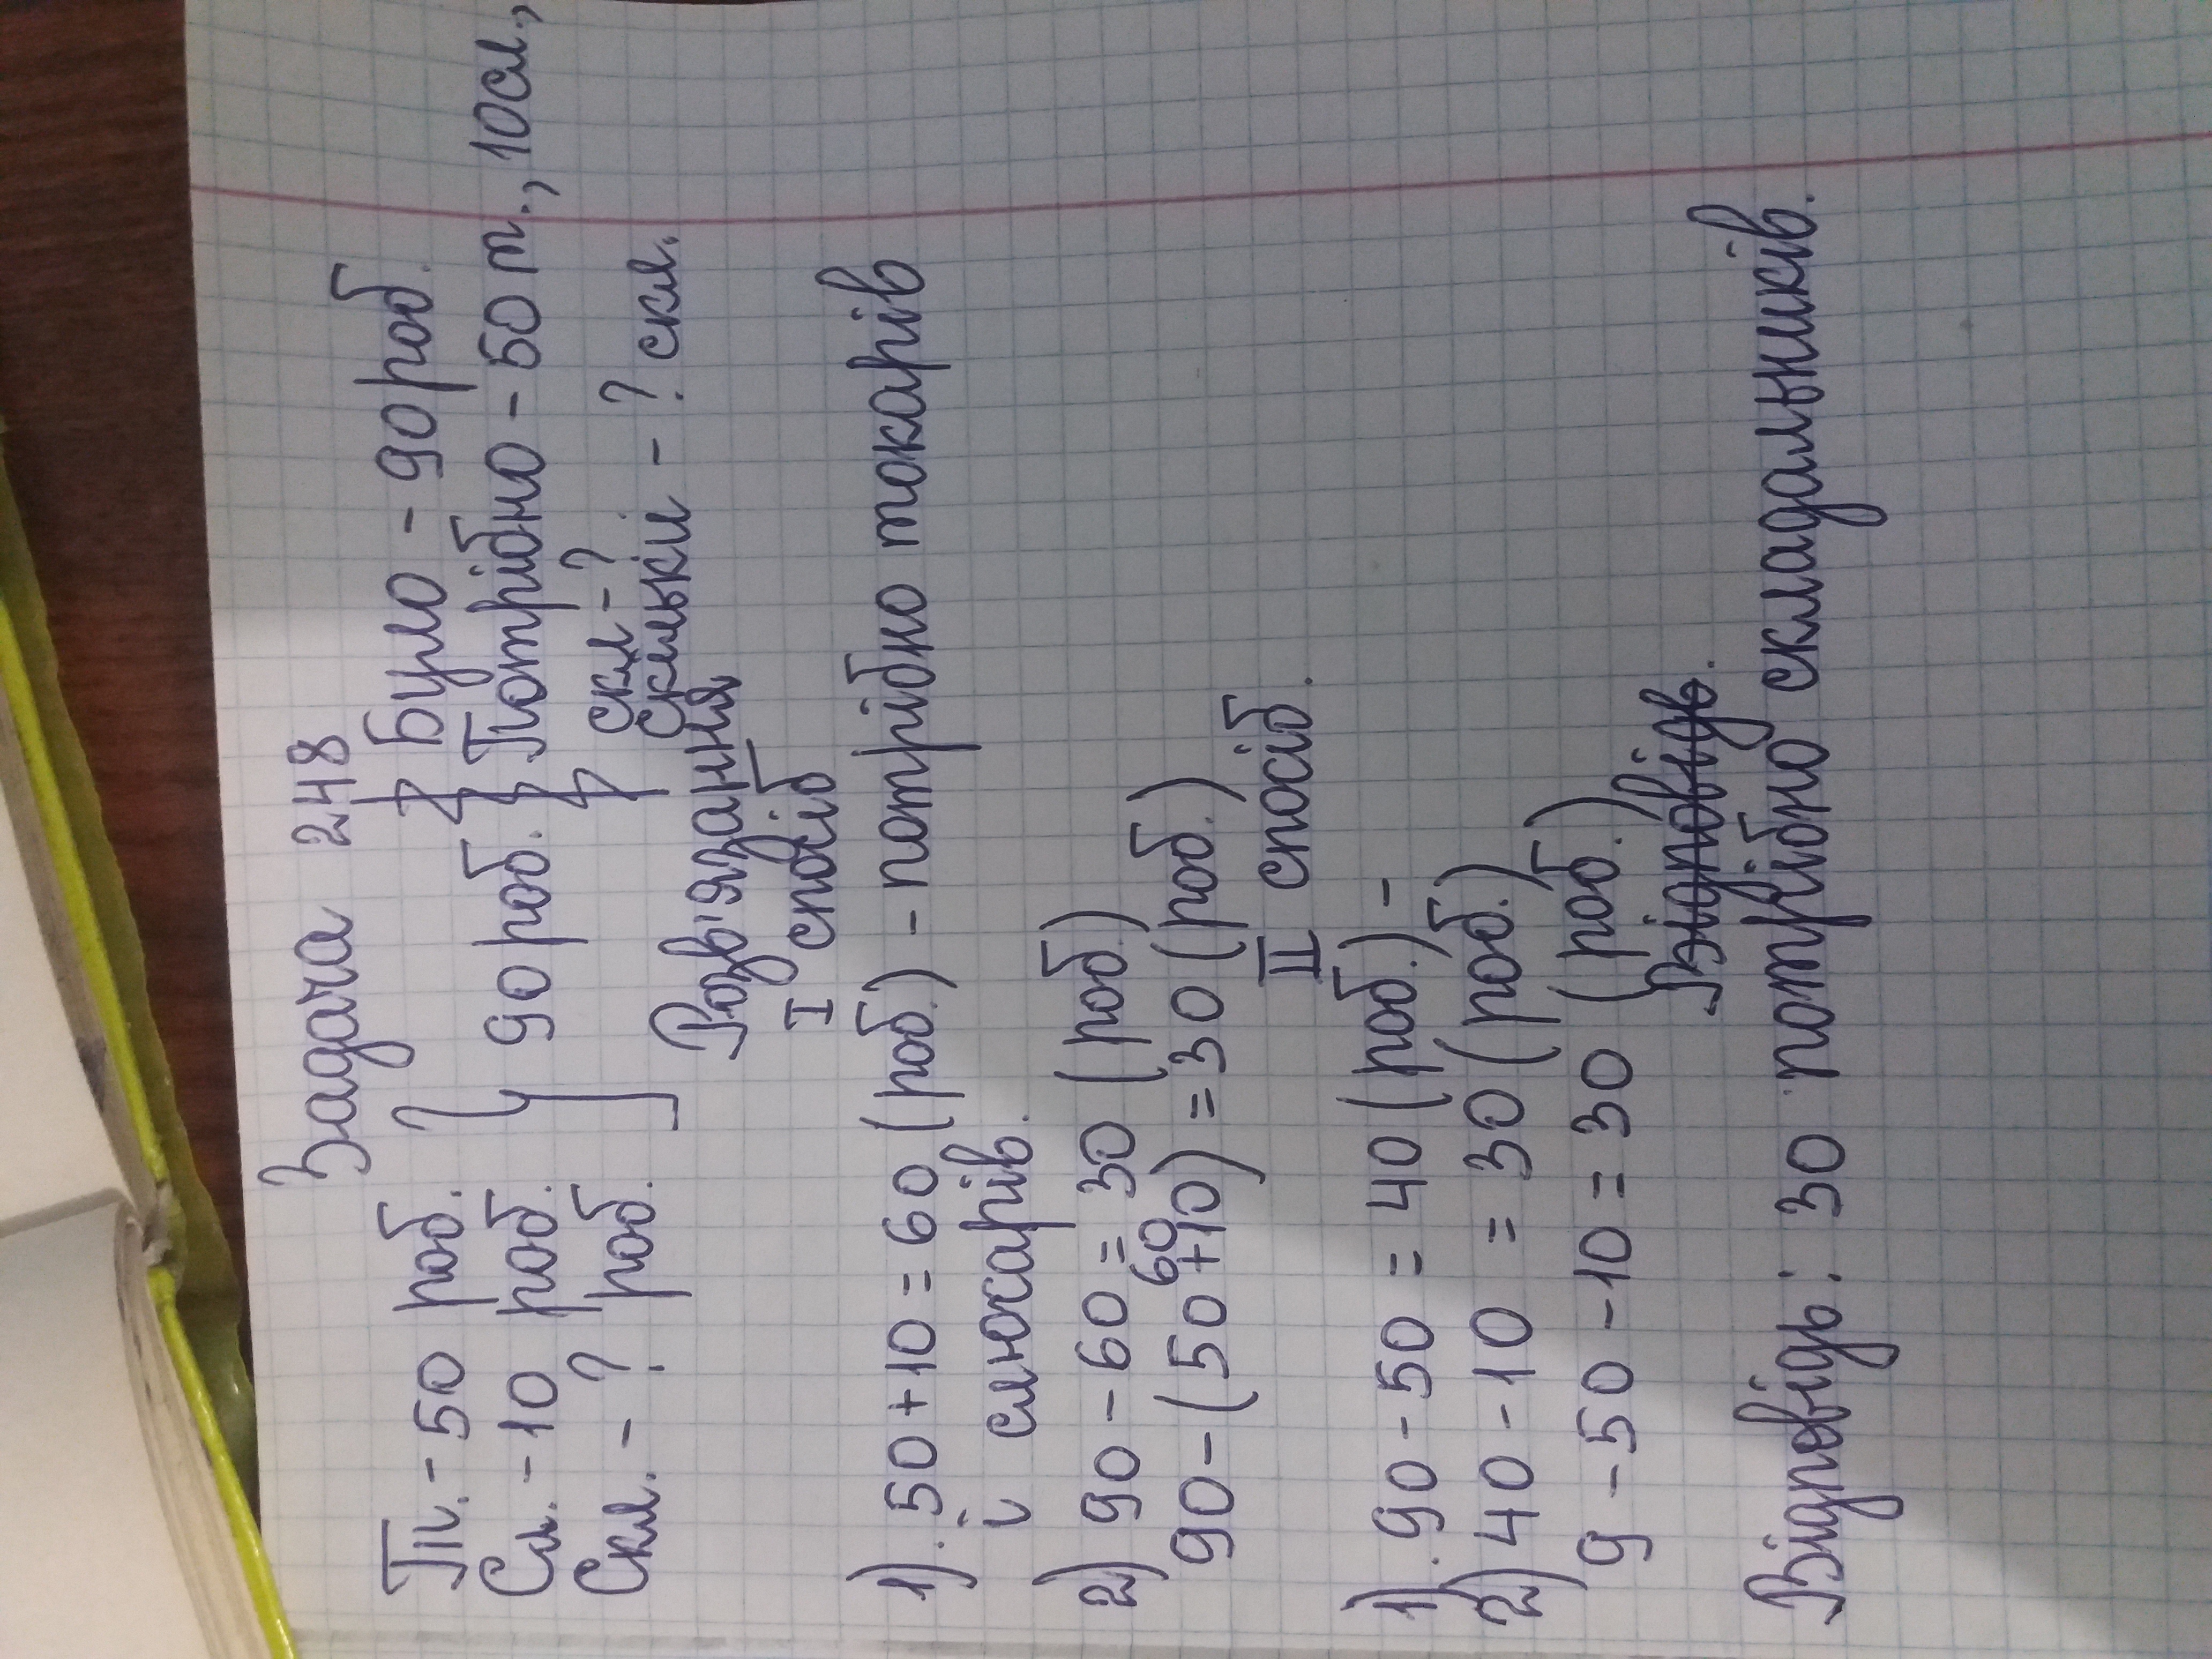 Задача 248
Т. - 50 роб.
Сл. - 10 роб.
Скл. - ? роб.
90 роб.
Було - 90 роб.
Потрібно - 50 т., 10 сл.,
скл - ?
скільки - ? скл.
Розв'язання
І спосіб
1). 50 + 10 = 60 (роб.) - потрібно токарів
і слюсарів.
2) 90 - 60 = 30 (роб.)
60
90 - (50 + 10) = 30 (роб.)
ІІ спосіб.
1). 90 - 50 = 40 (роб.) -
2) 40 - 10 = 30 (роб.)
9 - 50 - 10 = 30 (роб.)
Відповідь.
Відповідь: 30 потрібно складальників.